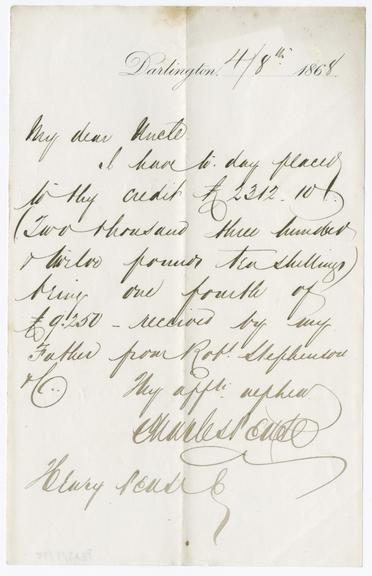 Darlington, 4/8th 1868
My dear Uncle
I have to-day placed
to thy credit £2312.10/
(Two thousand three hundred
& twelve pounds ten shillings)
being one fourth of
£9.250 - received by my
Father from Robt Stephenson
& Co..
Thy affte nephew
Charles Pease
Henry Pease